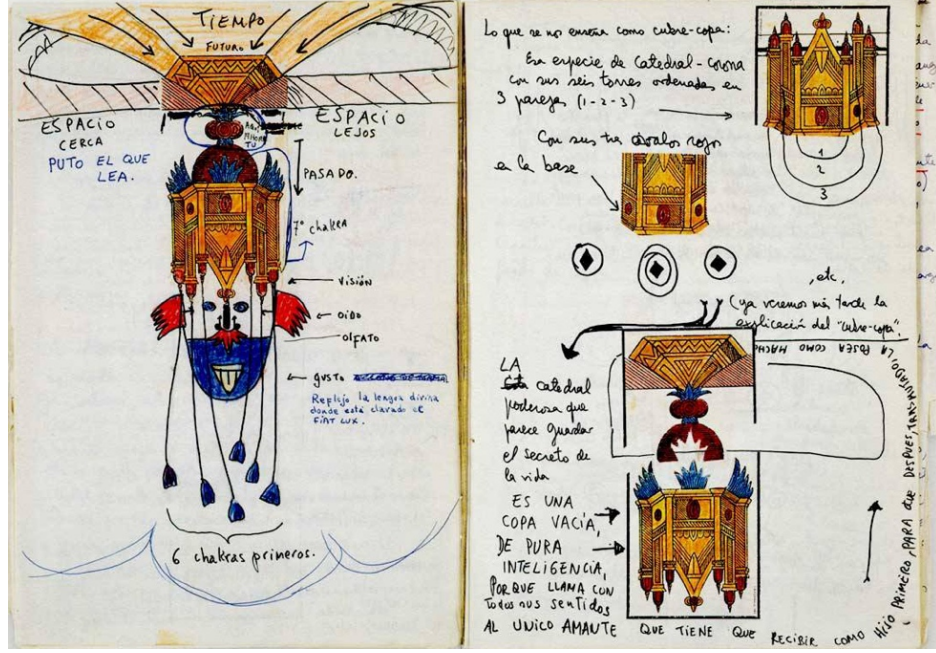 TIEMPO
FUTURO
ESPACIO
CERCA
PUTO EL QUE
LEA.
ESPACIO
LEJOS
TU
PASADO.
7º chakra
VISIÓN
OIDO
OLFATO
GUSTO
Reflejo la lengua divina
donde está clavado el
FIAT LUX.
6 chakras primeros.
Lo que se nos enseña como cubre-copa:
Esa especie de Catedral-Corona
con sus seis torres ordenadas en
3 parejas (1-2-3)
1
2
3
Con sus tres óvalos rojos
en la base
, etc,
(ya veremos más tarde la
explicación del "cubre-copa".
LA POSEA COMO MACHO
LA
Esta catedral
poderosa que
parece guardar
el secreto de
la vida
ES UNA
COPA VACÍA,
DE PURA
INTELIGENCIA,
PORQUE LLAMA CON
Todos sus sentidos
AL UNICO AMANTE QUE TIENE QUE RECIBIR COMO HIJO PRIMERO, PARA QUE DESPUES, TRANSMUTADO,